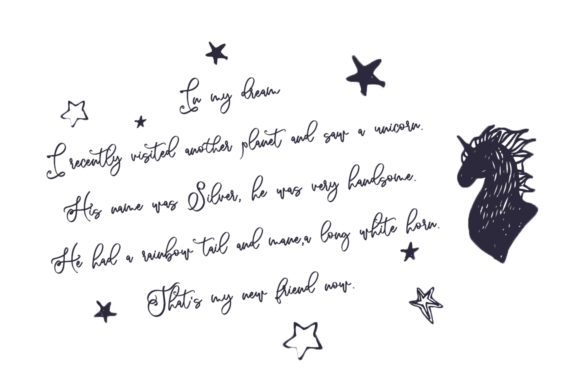 In my dream
I recently visited another planet and saw a unicorn.
His name was Silver, he was very handsome.
He had a rainbow tail and mane,a long white horn.
That's my new friend now.